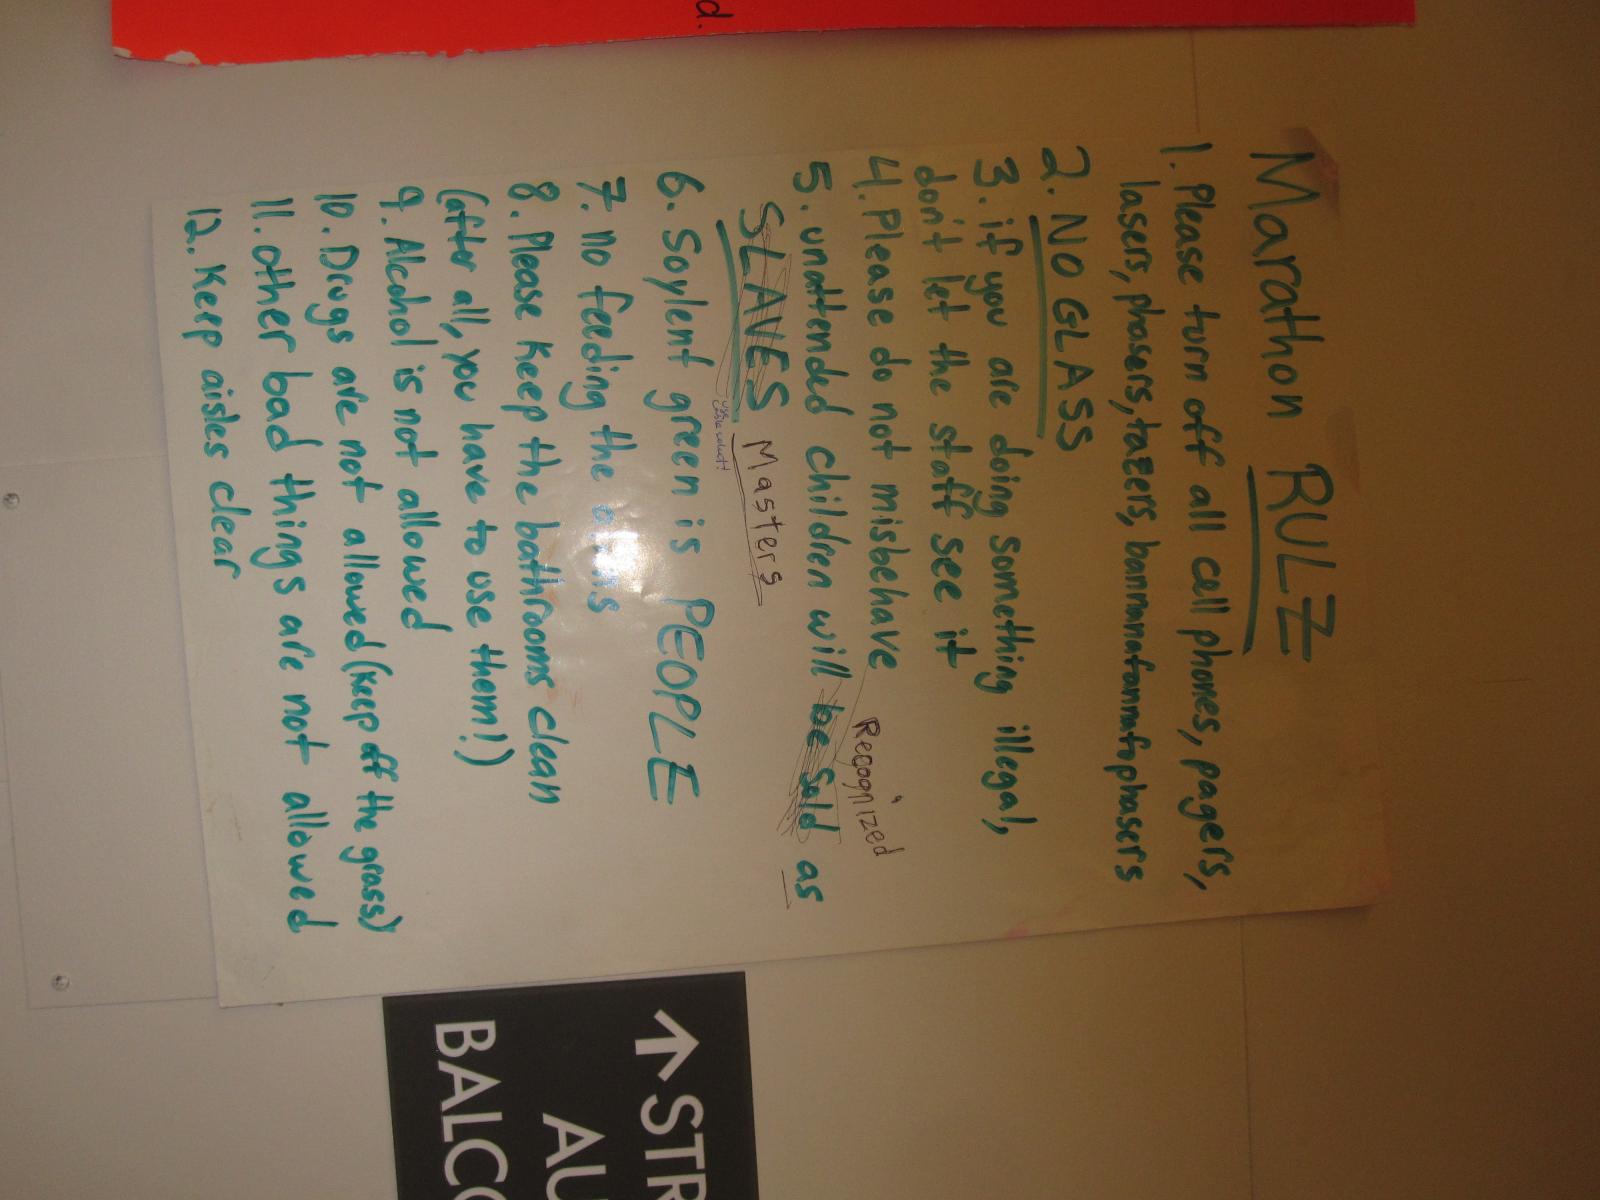 d.
Marathon RULZ
1. Please turn off all cell phones, pagers,
lasers, phasers, tazers, bannanafannafophasers
2. NO GLASS
3. if you are doing something illegal,
don't let the staff see it
4. Please do not misbehave
Recognized
5. unattended children will be sold as
SLAVES Masters
6. Soylent green is PEOPLE
7. no feeding the
8. Please keep the bathrooms clean
(after all, you have to use them!)
9. Alcohol is not allowed
10. Drugs are not allowed (keep off the grass)
11. other bad things are not allowed
12. Keep aisles clear
↑ STR
AU
BALCO